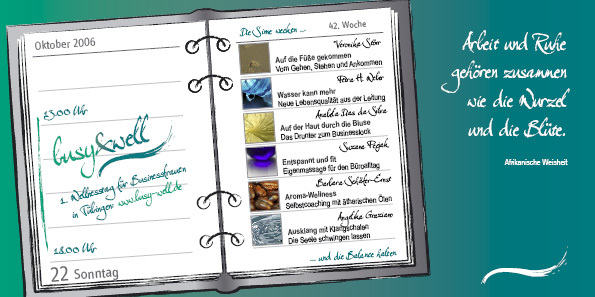 Oktober 2006
13.00 Uhr
busy&well
1. Wellnesstag für Businessfrauen
in Tübingen www.busy-well.de
18.00 Uhr
22 Sonntag
Die Sinne wecken ...
42. Woche
Veronika
Auf die Füße gekommen
Vom Gehen, Stehen und Ankommen
Petra H. Weber
Wasser kann mehr
Neue Lebensqualität aus der Leitung
da Silva
Auf der Haut durch die Bluse
Das Drunter zum Businesslook
Suzane
Entspannt und fit
Eigenmassage für den Büroalltag
Barbara Schäfer-Ernst
Aroma-Wellness
Selbstcoaching mit ätherischen Ölen
Angelika Graziani
Ausklang mit Klangschalen
Die Seele schwingen lassen
... und die Balance halten
Arbeit und Ruhe
gehören zusammen
wie die Wurzel
und die Blüte.
Afrikanische Weisheit